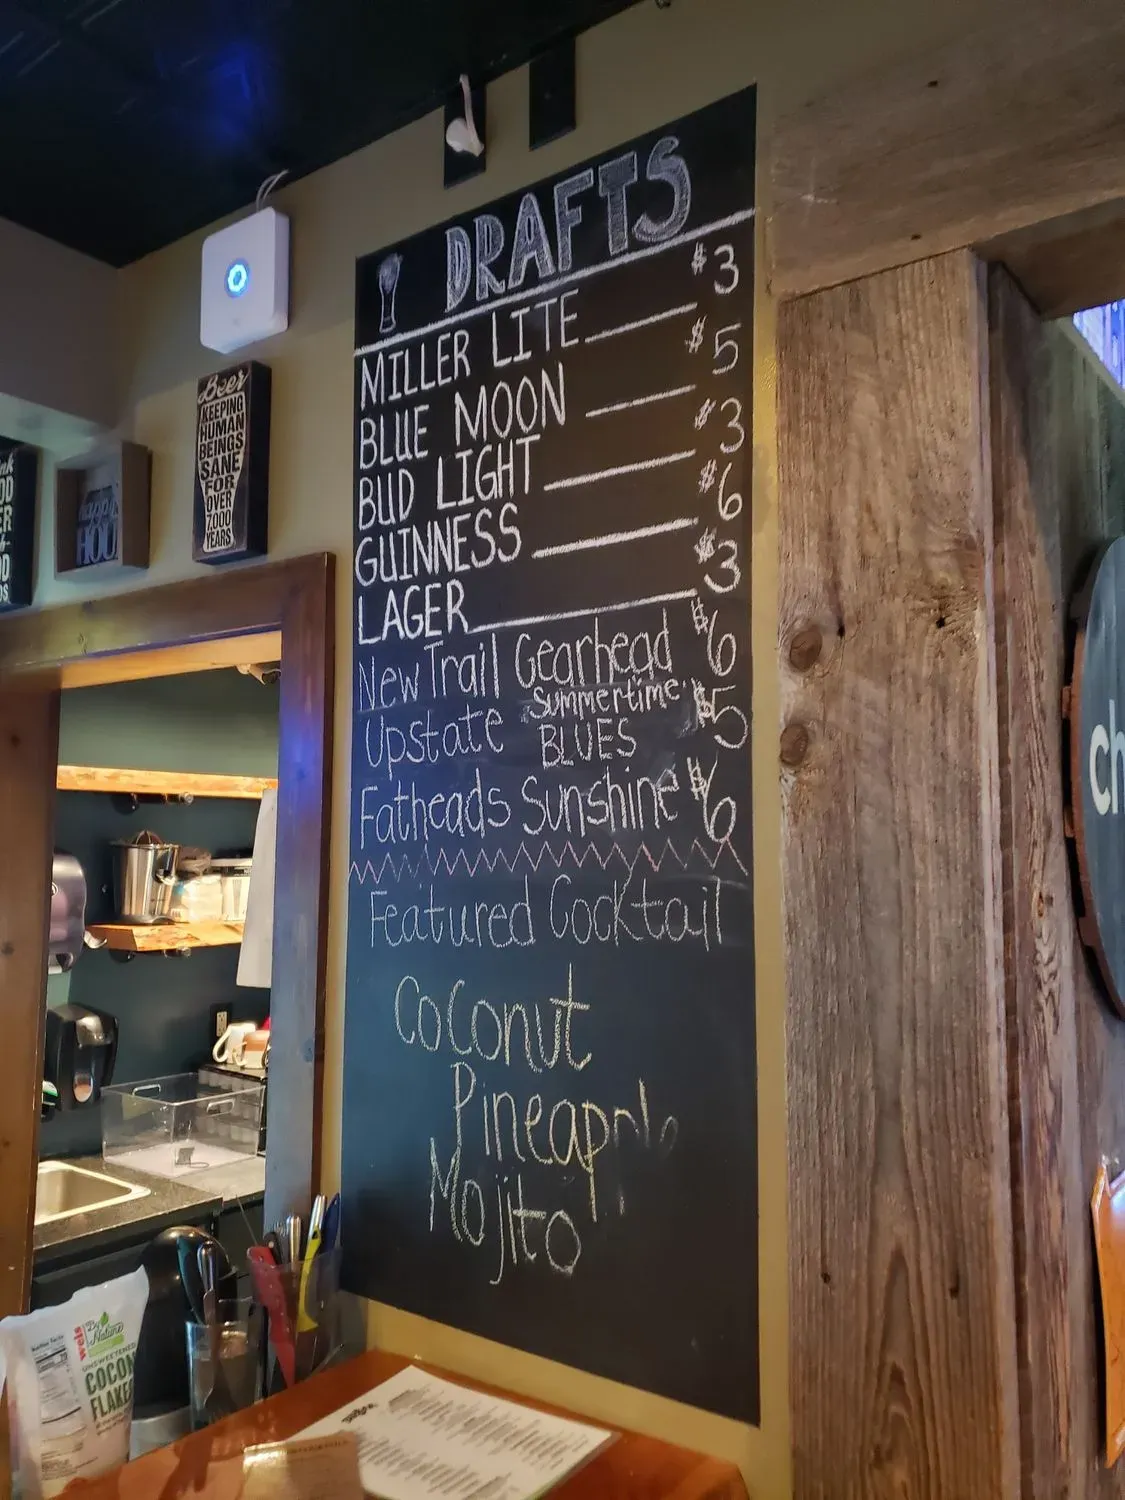 DRAFTS
MILLER LITE $3
BLUE MOON $5
BUD LIGHT $3
GUINNESS $6
LAGER $3
New Trail Gearhead $6
Upstate Summertime BLUES $5
Fatheads Sunshine $6
Featured Cocktail
Coconut
Pineapple
Mojito
Beer
KEEPING
HUMAN
BEINGS
SANE
FOR
OVER
7,000
YEARS
happy
HOU
ch
By Nature
UNSWEETENED
COCON
FLAKE